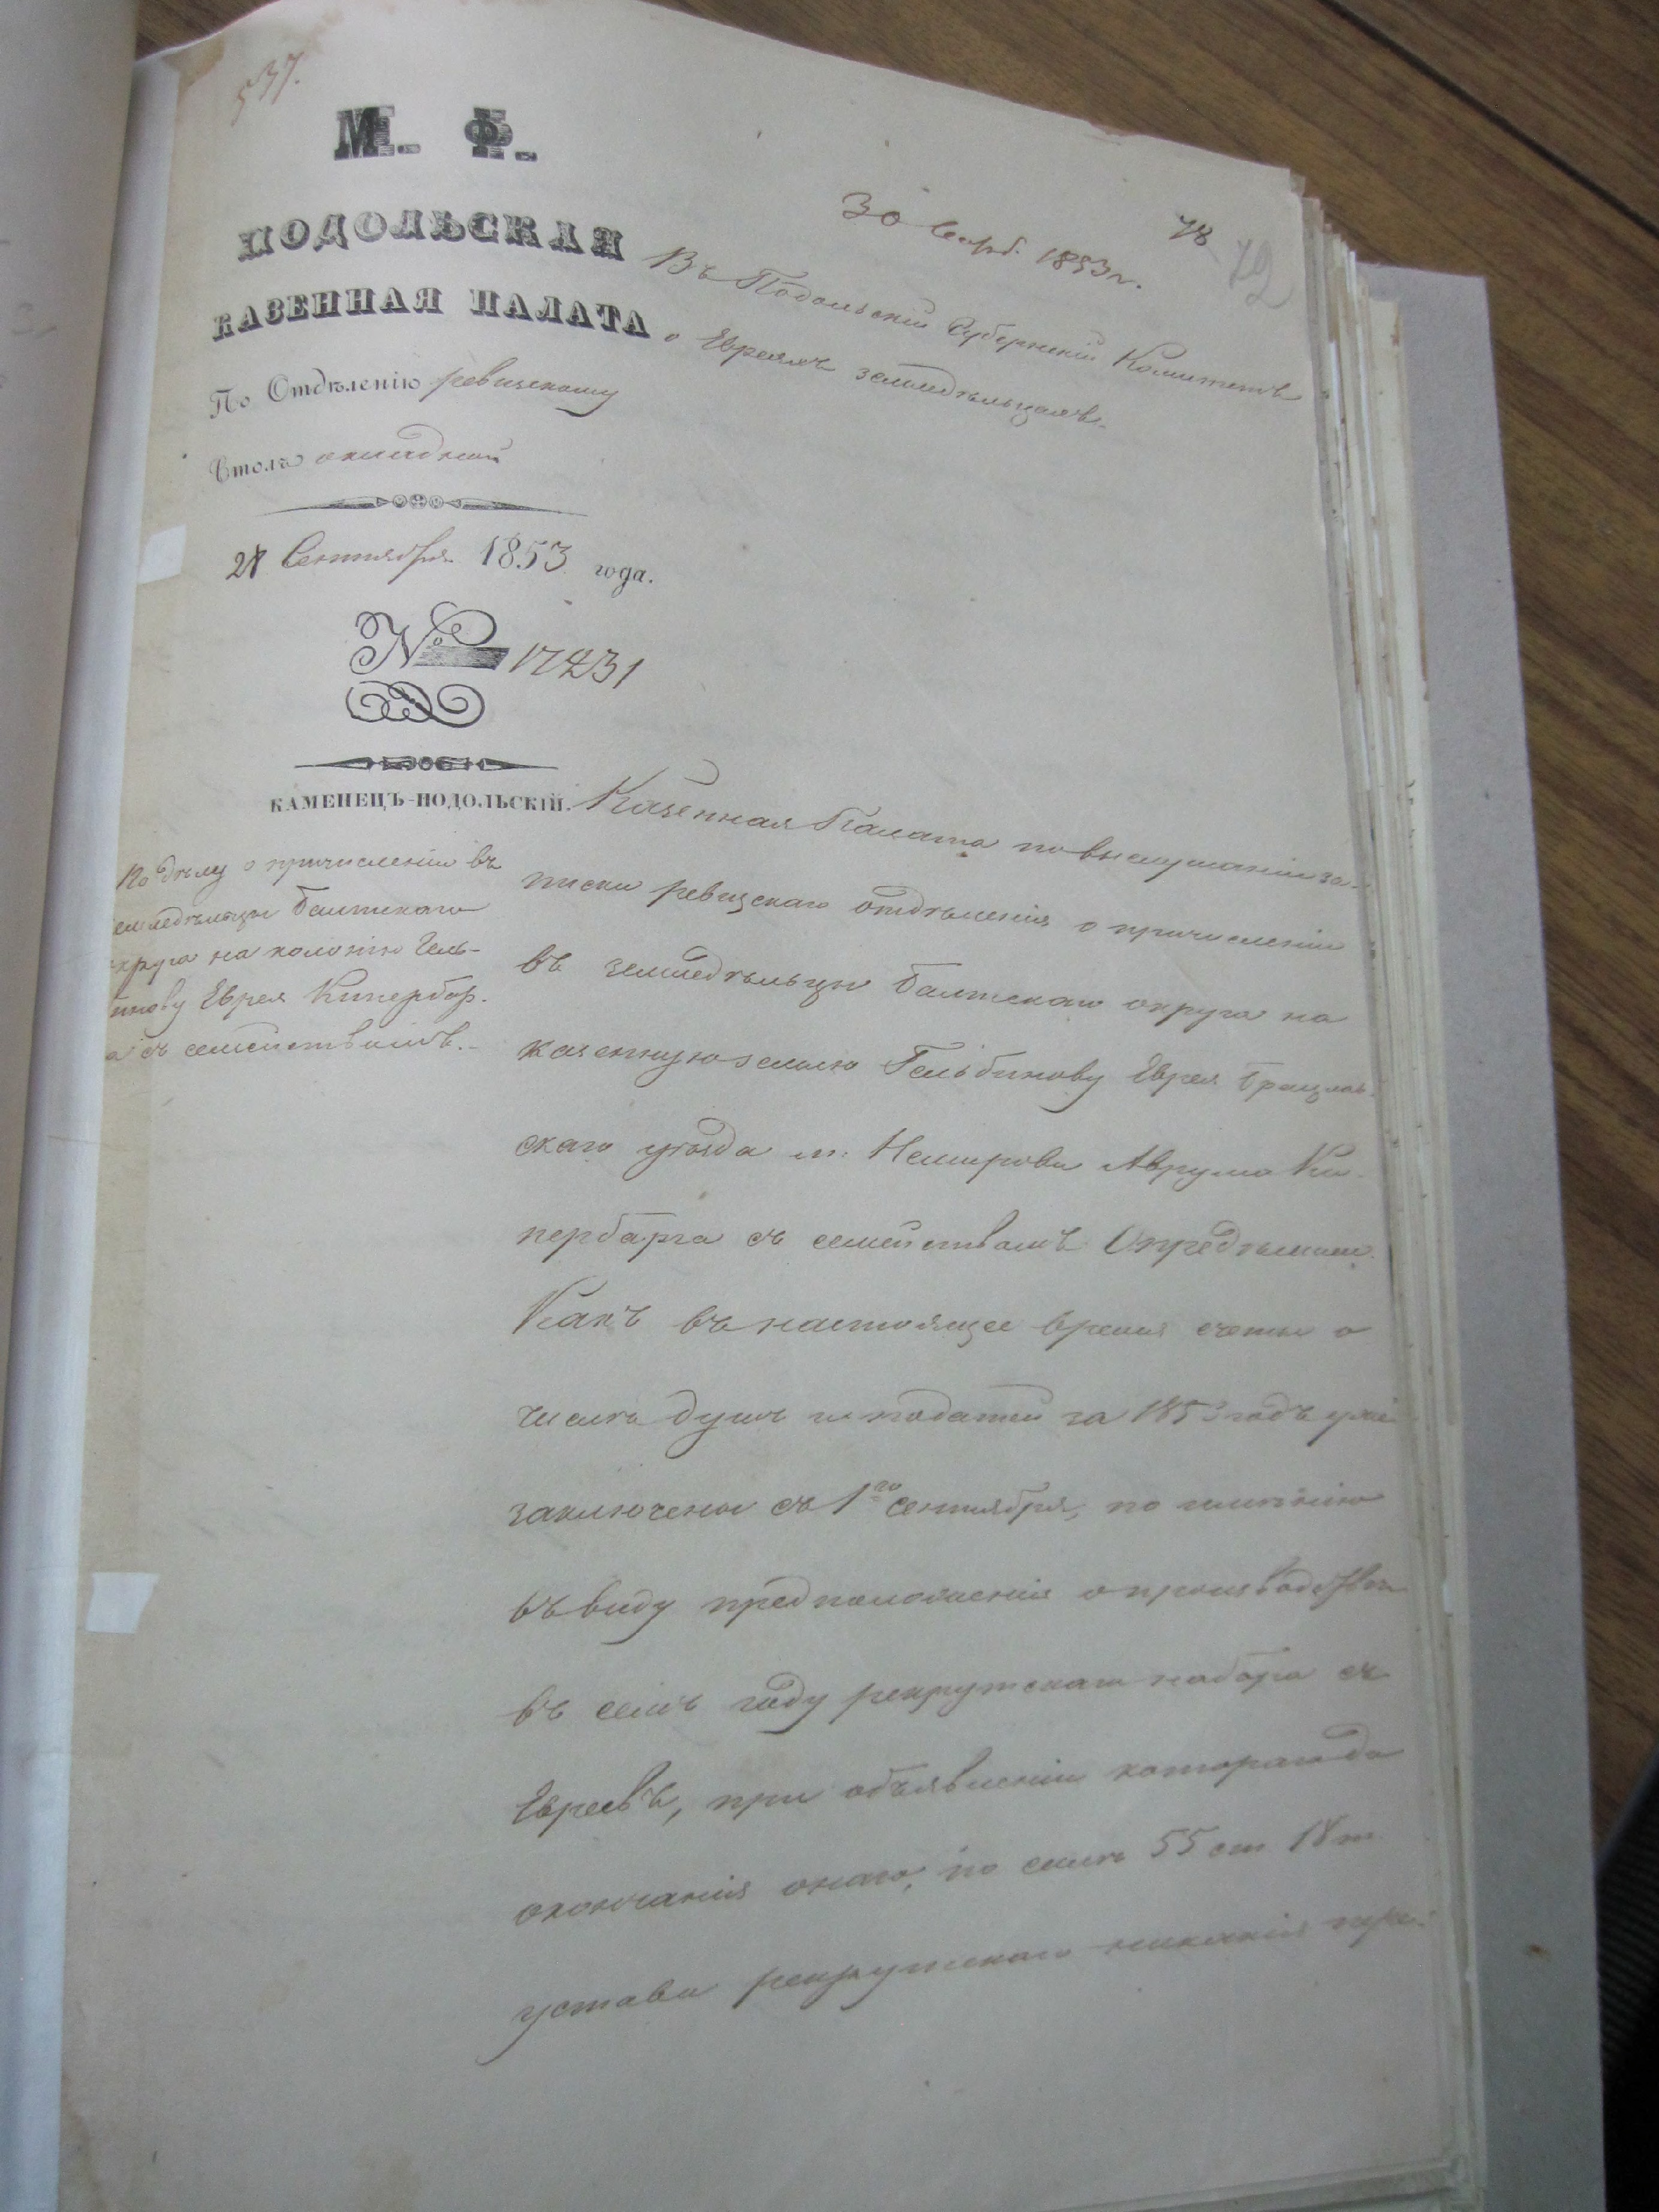 537.
М. Ф.
ПОДОЛЬСКАЯ
КАЗЕННАЯ ПАЛАТА
По Отдѣленію ревизскому
Столъ окладной
Сентября 1853 года.
№ 17431
КАМЕНЕЦЪ-ПОДОЛЬСКІЙ.
По дѣлу о причисленіи въ
емледѣльцы Балтскаго
округа на колонію Гель-
бинову Еврея Кипербар-
а съ семействомъ.
30 Сент. 1853 г.
78
72
Въ Подольскій Губернскій Комитетъ
о Евреяхъ земледѣльцахъ.
Казенная Палата по выслушаніи за-
писки ревизскаго отдѣленія о причисленіи
въ земледѣльцы Балтскаго округа на
казенную землю Гельбинову Еврея Брацлав-
скаго уѣзда м: Немирова Аврума Ки-
пербарга съ семействомъ Опредѣлила:
Какъ въ настоящее время счеты о
числѣ душъ и податей за 1853 годъ уже
заключены съ 1го Сентября, по имѣнію
въ виду предположенія о производствѣ
въ семъ году рекрутскаго набора съ
Евреевъ, при объявленіи котораго до
окончанія онаго, по силѣ 55 ст
устава рекрутскаго никакія пере-